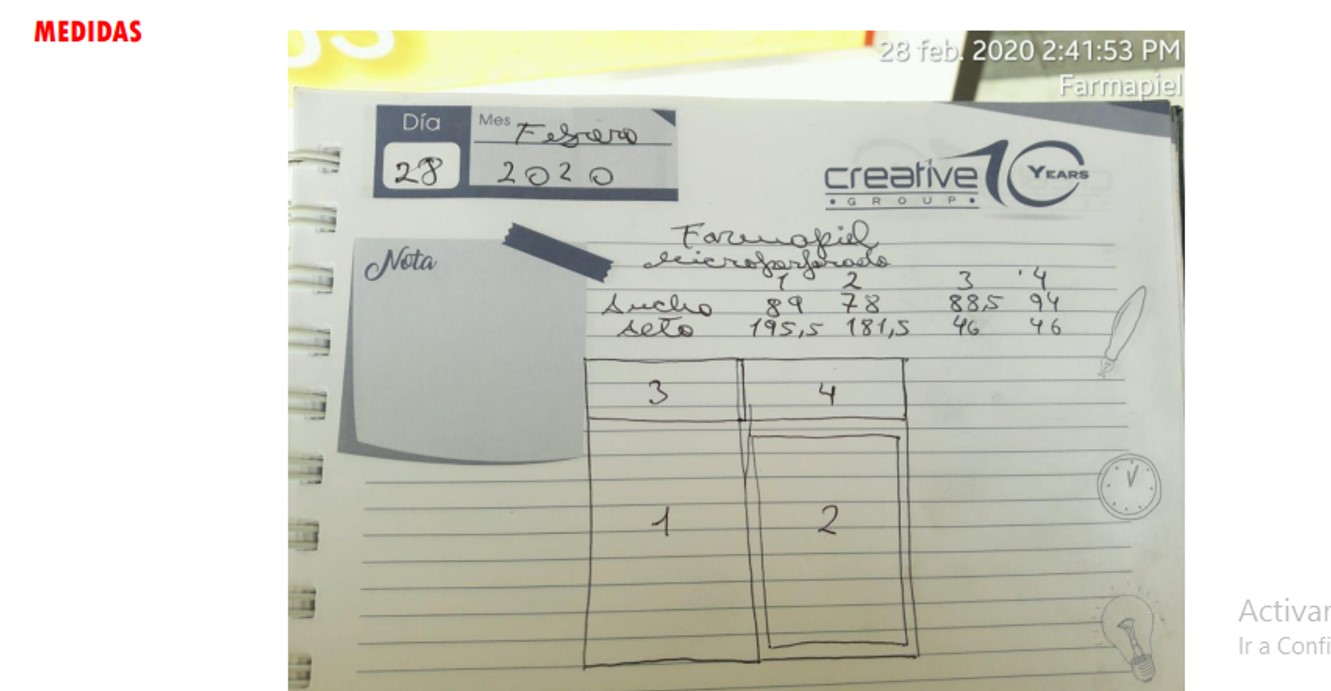 MEDIDAS
28 feb. 2020 2:41:53 PM
Farmapiel
Día
Mes Febrero
28
2020
creative 10 YEARS
GROUP
Nota
Farmapiel
Microperforado
1 2 3 4
Ancho 89 78 88,5 94
Alto 195,5 181,5 46 46
3 4
1 2
Activar
Ir a Confi